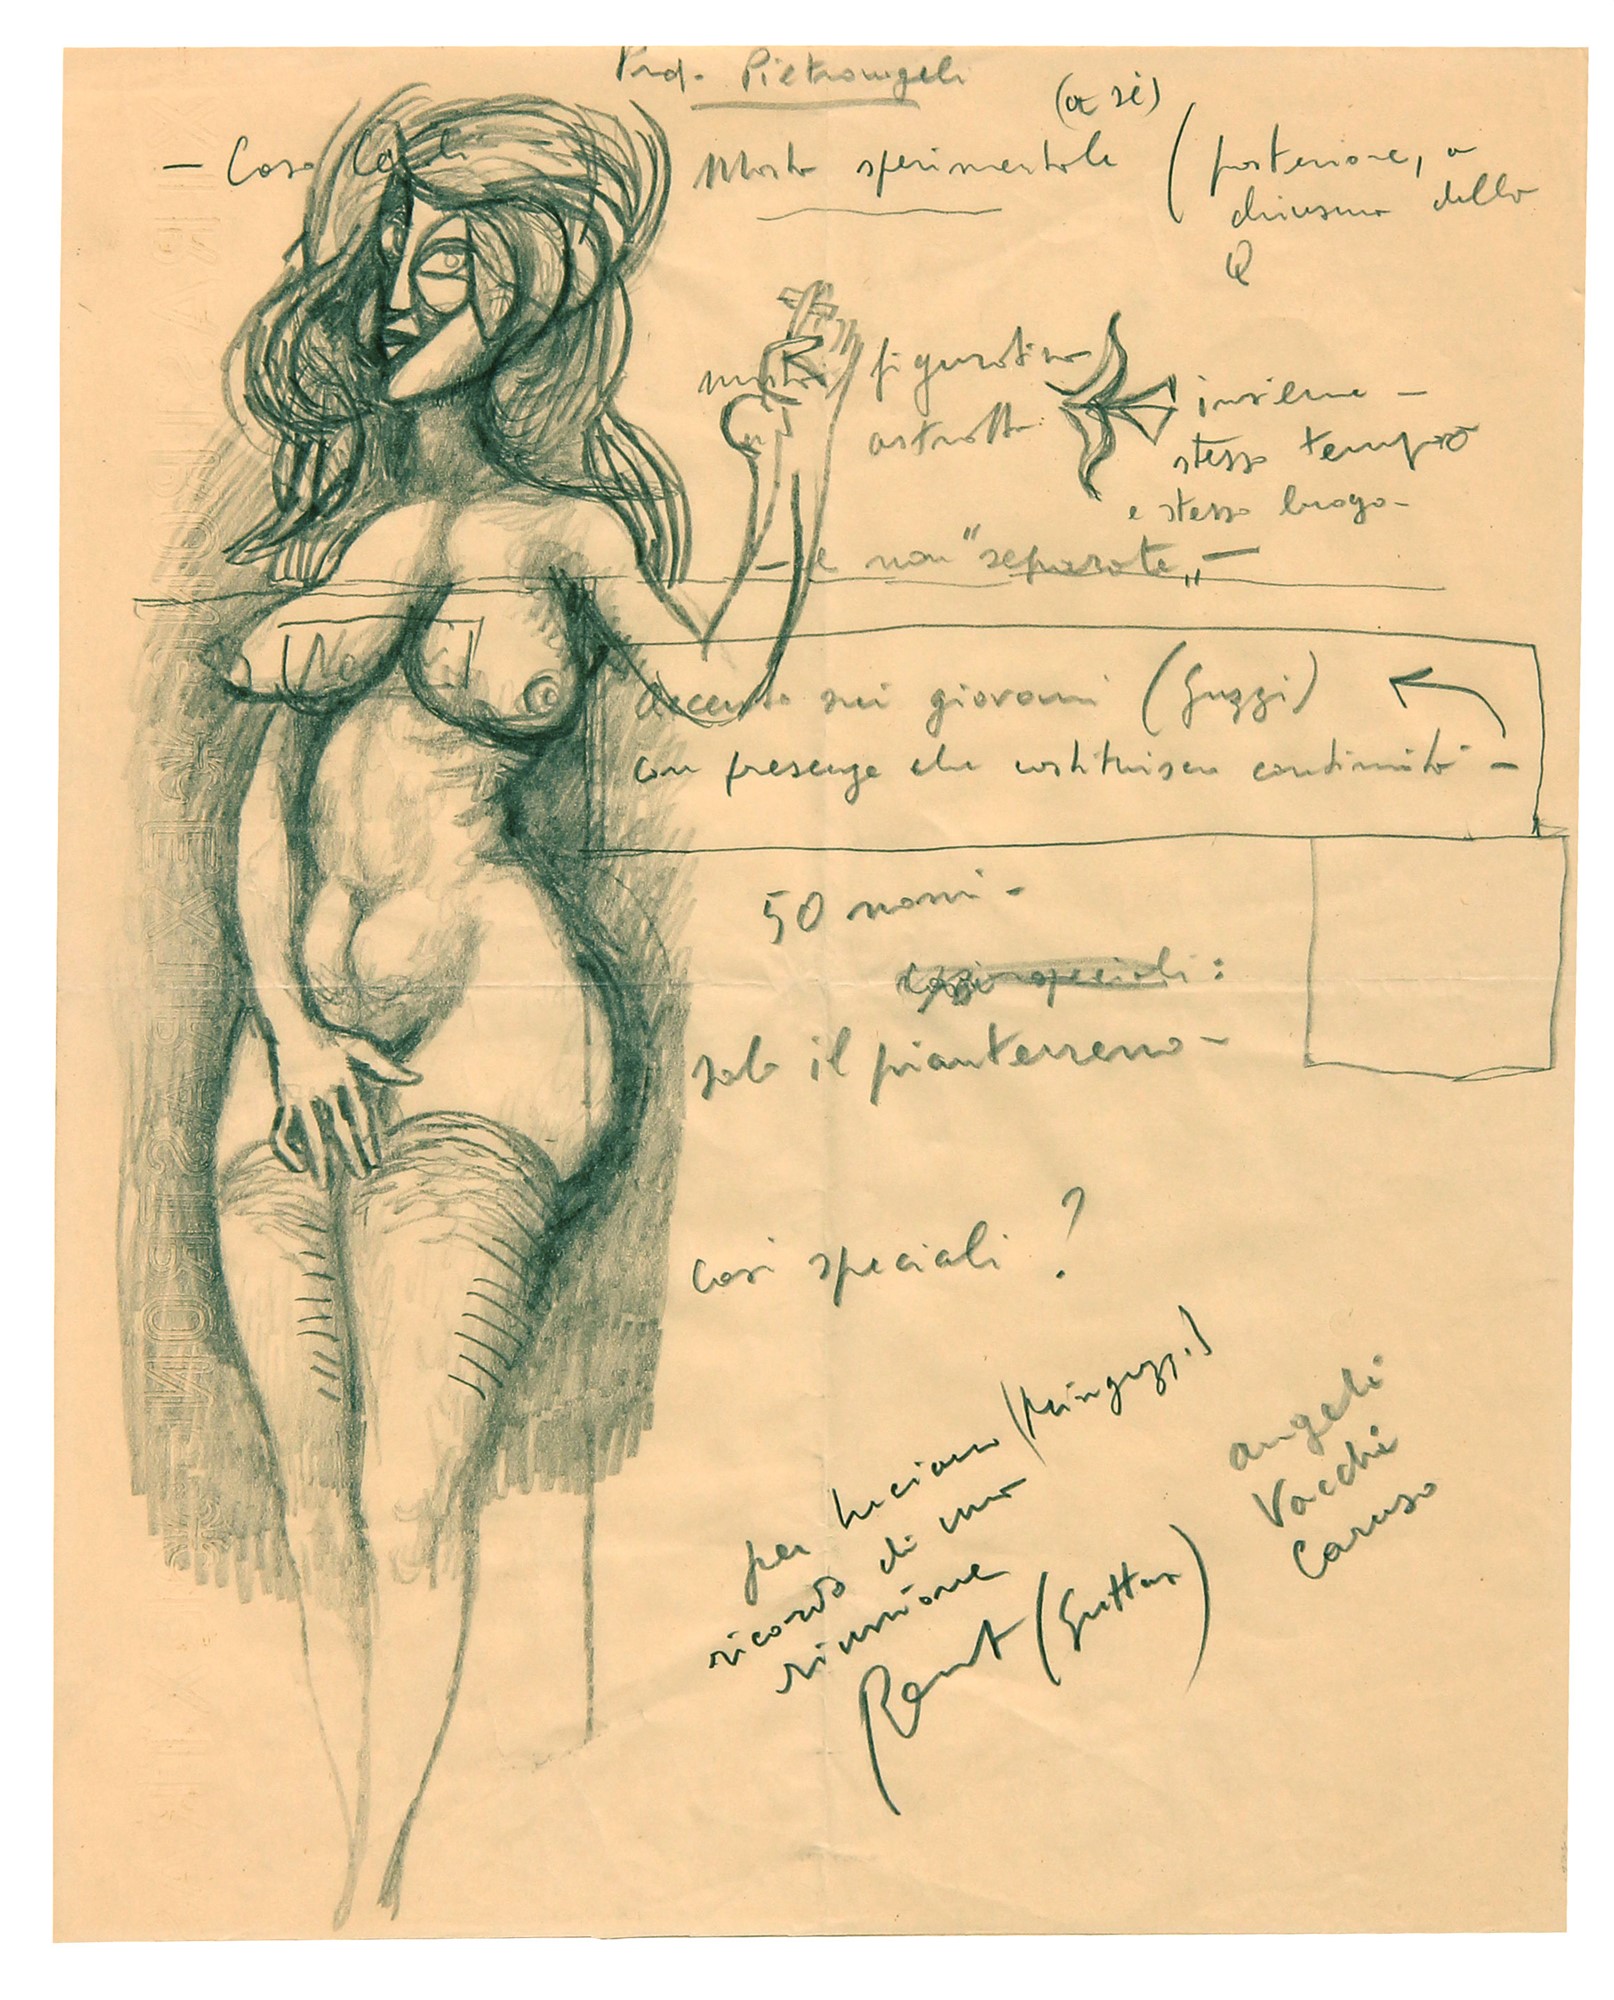 Prof. Pietrangeli
(a sé)
- Casa
Mostra sperimentale (posteriore, a
chiusura della
Q
figurativa
astratta
insieme -
stesso tempo
e stesso luogo -
- e non "separate" -
accento sui giovani (Guzzi)
con presenze che costituiscono continuità -
50 nomi -
casi speciali:
solo il pianterreno -
casi speciali ?
per Luciano (Princuzzi)
ricordo di una
riunione
Renato (Guttuso)
angeli
Vacchi
Caruso
EXTRASTRONG